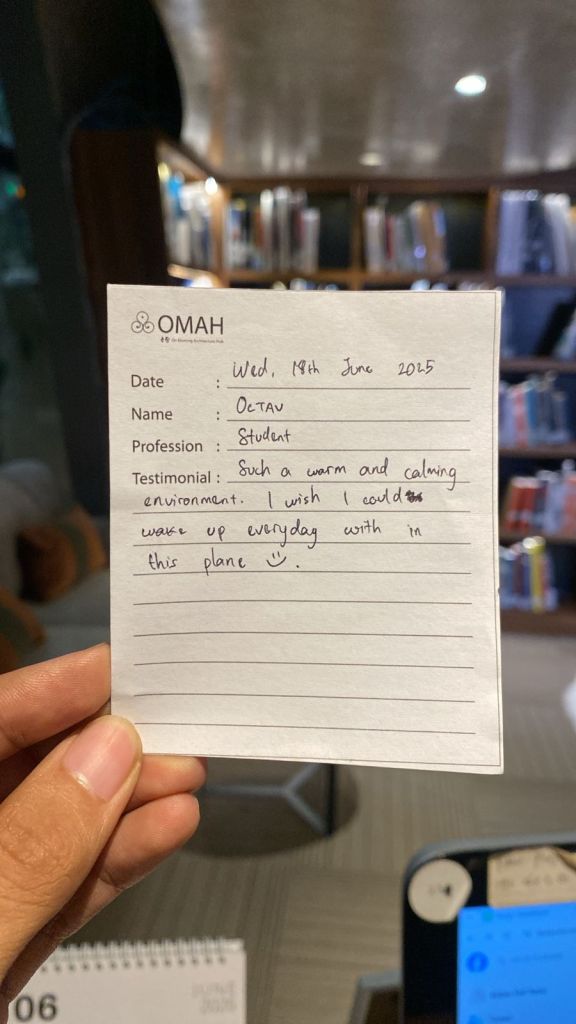 OMAH
Date : Wed, 18th June 2025
Name : OCTAV
Profession : Student
Testimonial : Such a warm and calming
environment. I wish I could
wake up everyday with in
this plane
06
JUNE